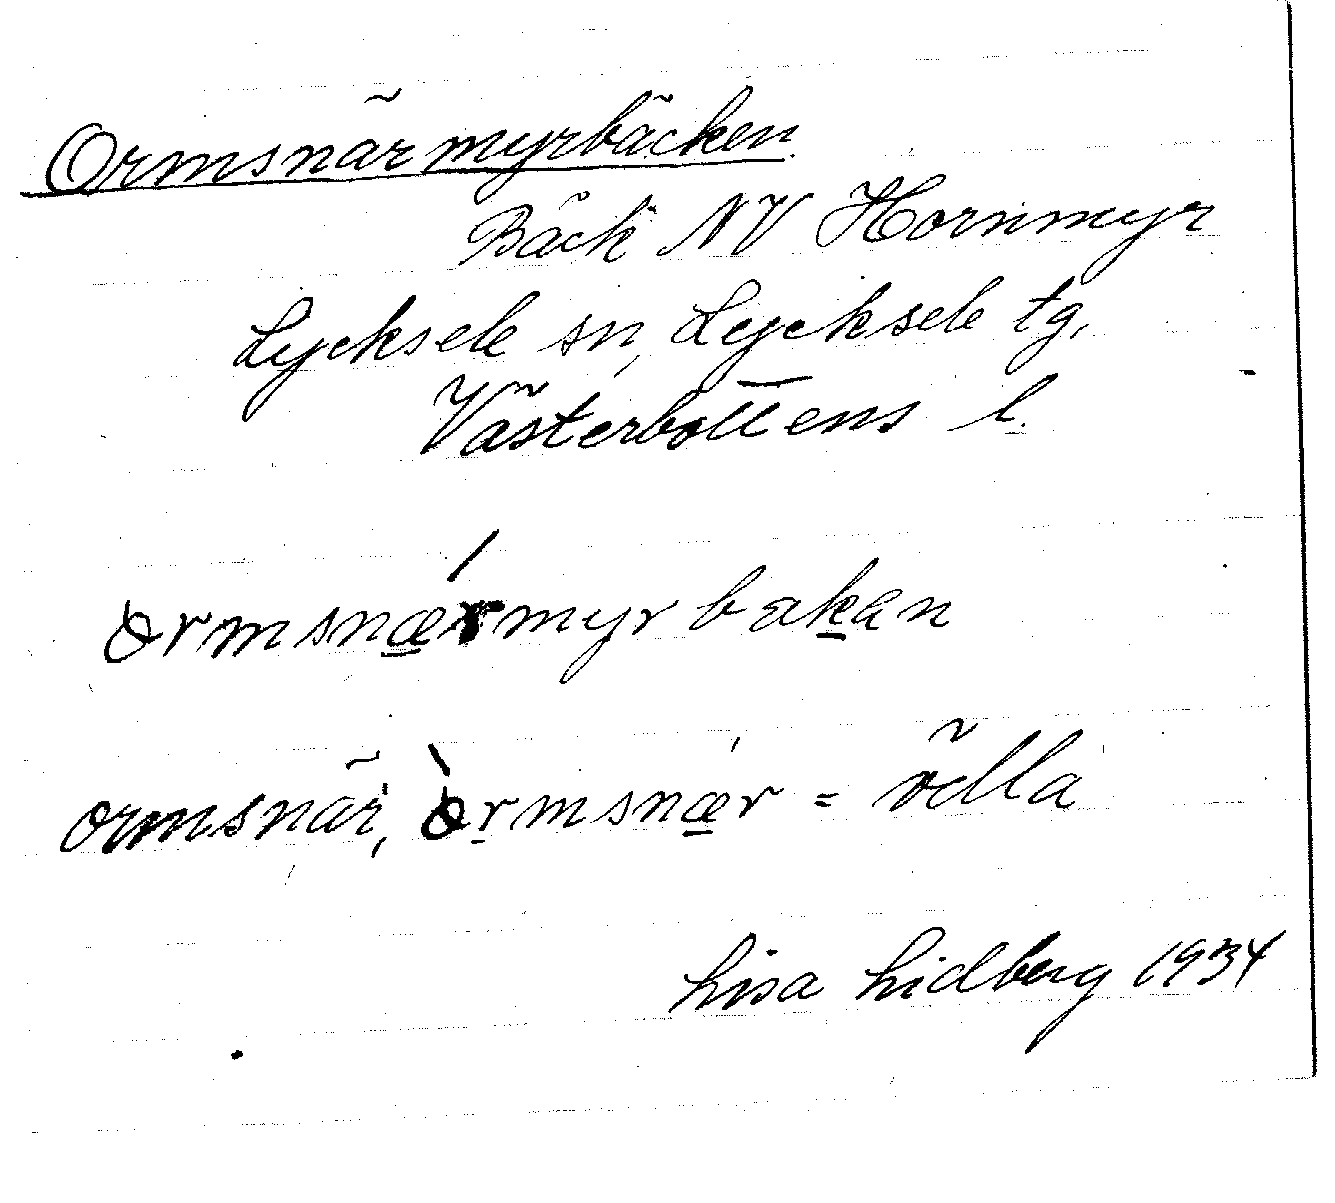 Ormsnärmyrbäcken
Bäck NV Hornmyr
Lycksele sn, Lycksele tg,
Västerbottens l.
ormsnærmyrbækan
ormsnär, òrmsnær =
Lisa Lidberg 1934